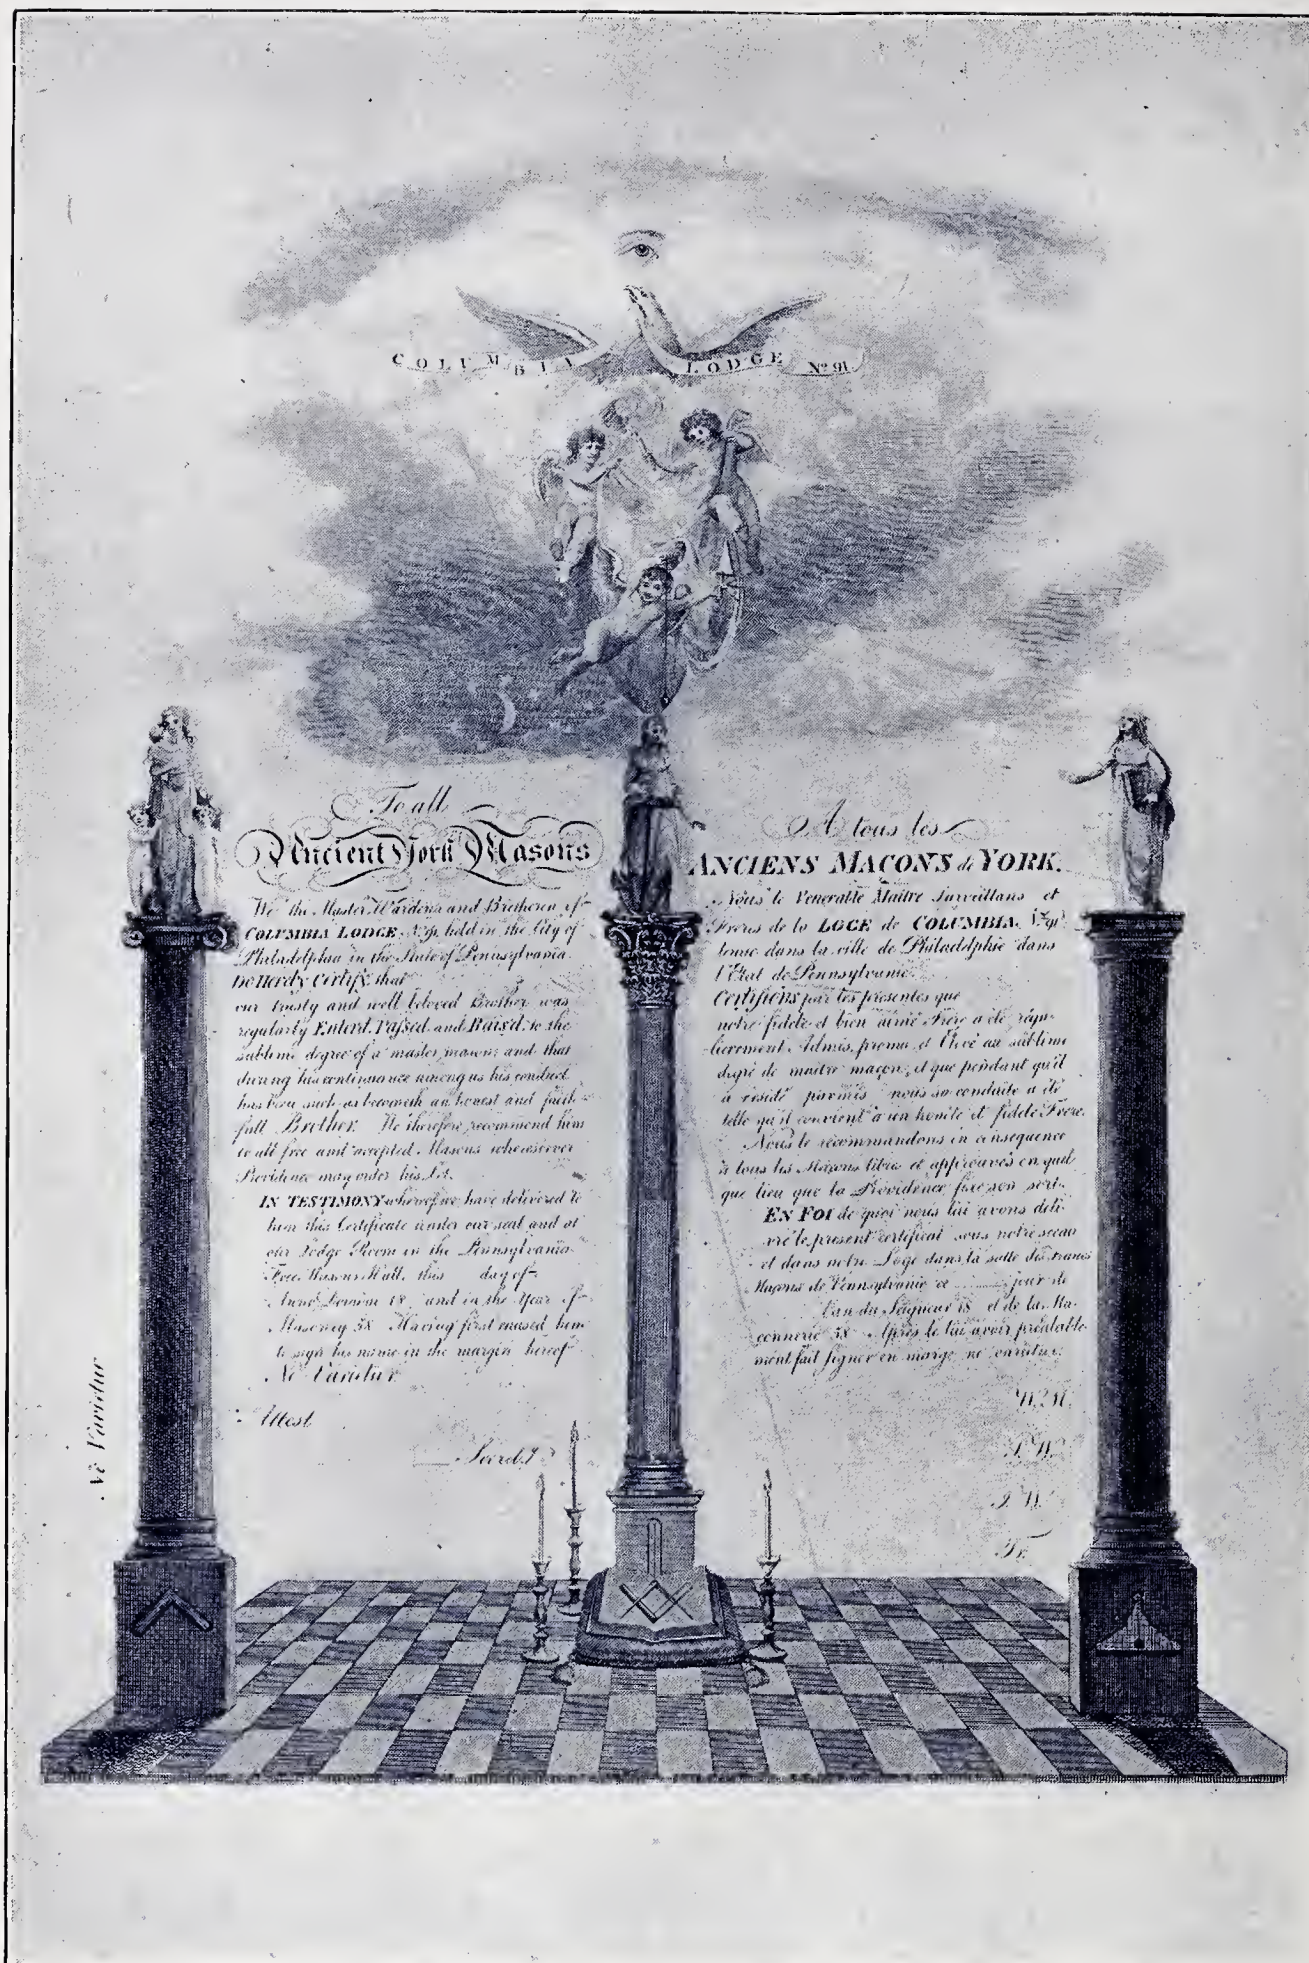 COLUMBIA LODGE No 91
To all
Ancient York Masons
We the Master Wardens and Bretheren of
COLUMBIA LODGE, No 91, held in the City of
Philadelphia in the State of Pennsylvania
Do Herely Certify, that
our trusty and well beloved Brother was
regularly Enterd, Passed and Rais'd to the
sublime degree of a master mason; and that
during his continuance among us his conduct
has been such as becometh an honest and faith-
full Brother. We therefore recommend him
to all free and accepted Masons wheresoever
Providence may order his Lot.
IN TESTIMONY whereof we have delivered to
him this Certificate under our seal and at
our Lodge Room in the Pennsylvania
Free Masons Hall, this day of
Anno Domini 18 and in the Year of
Masonry 58 Having first caused him
to sign his name in the margin hereof
Ne Varietur
Attest
Secrety
A tous les
ANCIENS MAÇONS de YORK.
Nous le Venerable Maitre Surveillans et
Freres de la LOGE de COLUMBIA, No 91,
tenue dans la ville de Philadelphie dans
l'Etat de Pennsylvanie
Certifions par les presentes que
notre fidele et bien aimé Frere a été régu-
lierement Admis, promu, et Elevé au sublime
degré de maitre maçon, et que pendant qu'il
a résidé parmis nous sa conduite a été
telle qu'il convient à un honête et fidele Frere.
Nous le recommandons en consequence
à tous les Maçons libres et approuvés en quel
que lieu que la Providence fixe son sort.
EN FOI de quoi nous lui avons deli-
vré le present certificat sous notre sceau
et dans notre Loge dans la salle des Francs
Maçons de Pennsylvanie ce jour de
l'an du Seigneur 18 et de la Ma-
connerie 58 Après le lui avoir préalable-
ment fait signer en marge ne varietur.
W. M.
S. W.
J. W.
Tr.
Ne Varietur